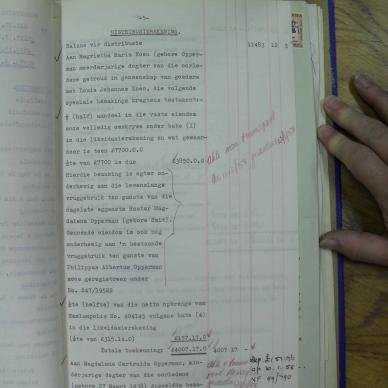 -5-
DISTRIBUSIEREKENING.
Balans vir distribusie 11483 12 5
Aan Magrietha Maria Koen (gebore Opper-
man meerderjarige dogter van die oorle-
dene getroud in gemeenskap van goedere
met Louis Johannes Koen, die volgende
spesiale bemakings kragtens testament:-
½ (half) aandeel in die vaste eiendom
soos volledig omskrywe onder bate (1)
in die likwidasierekening en wat gewaar-
deer is teen £7700.0.0
½te van £7700 is dus £3850.0.0
Hierdie bemaking is egter on-
derhewig aan die lewenslange
vruggebruik ten gunste van die
nagelate eggenote Hester Mag-
dalena Opperman (gebore Smit).
Genoemde eiendom is ook nog
onderhewig aan 'n bestaande
vruggebruik ten gunste van
Philippus Albertus Opperman
soos geregistreer onder
No. 847/1952S
½te (helfte) van die netto opbrengs van
Sanlampolis No. 404143 volgens bate (4)
in die likwidasierekening
(½te van £315.14.0) £157.17.0
Totale toekenning: £4007.17.0 4007 17 -
Aan Magdalena Gertruida Opperman, min-
derjarige dogter van die oorledene
(gebore 27 Maart 1938) dieselfde bema-